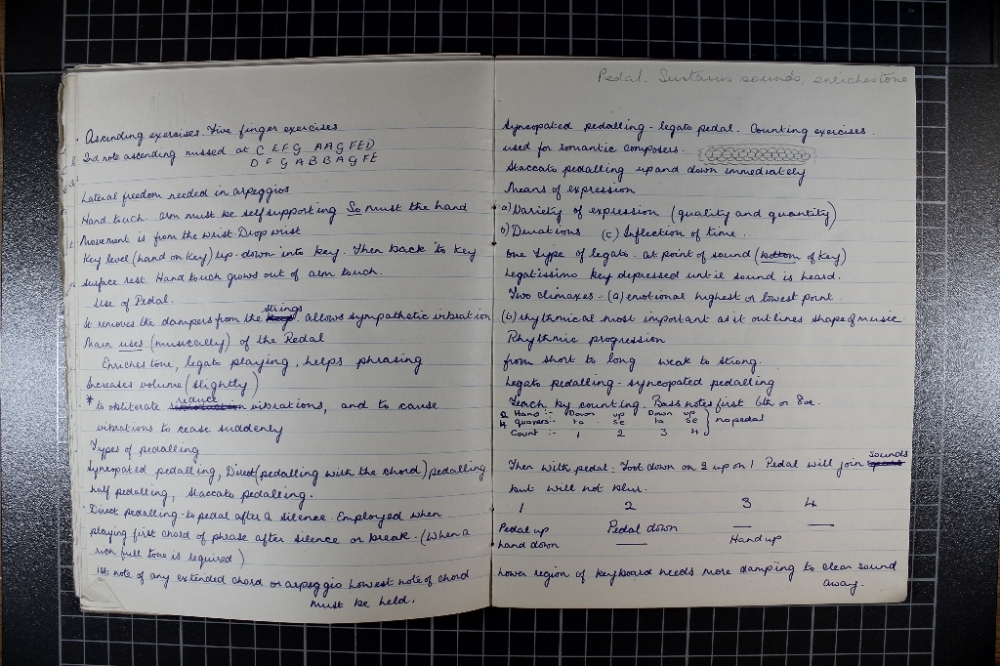 Ascending exercises. Five finger exercises
2nd note ascending missed at C E F G A A G F E D
D F G A B B A G F E
Lateral freedom needed in arpeggios
Hand touch arm must be self supporting So must the hand
Movement is from the wrist. Drop wrist
Key level (hand on key) up-down into key. Then back to key
surface rest Hand touch grows out of arm touch.
Use of Pedal.
So removes the dampers from the strings. allows sympathetic vibration
Main uses (musically) of the Pedal
Enriches tone, legato playing, helps phrasing
Increases volume (slightly)
* to obliterate reduce vibrations, and to cause
vibrations to cease suddenly
Types of pedalling
Syncopated pedalling, Direct (pedalling with the chord) pedalling
half pedalling, staccato pedalling.
Direct pedalling - to pedal after a silence. Employed when
playing first chord of phrase after silence or break. (When a
rich full tone is required)
1st note of any extended chord or arpeggio Lowest note of chord
must be held.
Pedal. Sustains sounds, enriches tone
Syncopated pedalling - legato pedal. Counting exercises.
used for romantic composers.
Staccato pedalling up and down immediately
Means of expression
a) Variety of expression (quality and quantity)
b) Durations (c) Inflection of time.
One type of legato. at point of sound (bottom of key)
Legatissimo key depressed until sound is heard.
Two climaxes - (a) emotional highest or lowest point.
(b) rhythmical most important as it outlines shape of music
Rhythmic progression
from short to long weak to strong.
Legato pedalling - syncopated pedalling
Teach by counting. Bass notes first 6th or 8ve.
2 Hand :- Down up Down up
4 quavers :- ta se ta se } no pedal
Count :- 1 2 3 4
Then with pedal: Foot down on 2 up on 1 Pedal will join sounds
but will not blur.
1 2 3 4
Pedal up Pedal down — —
hand down — Hand up
Lower region of keyboard needs more damping to clear sound
away.